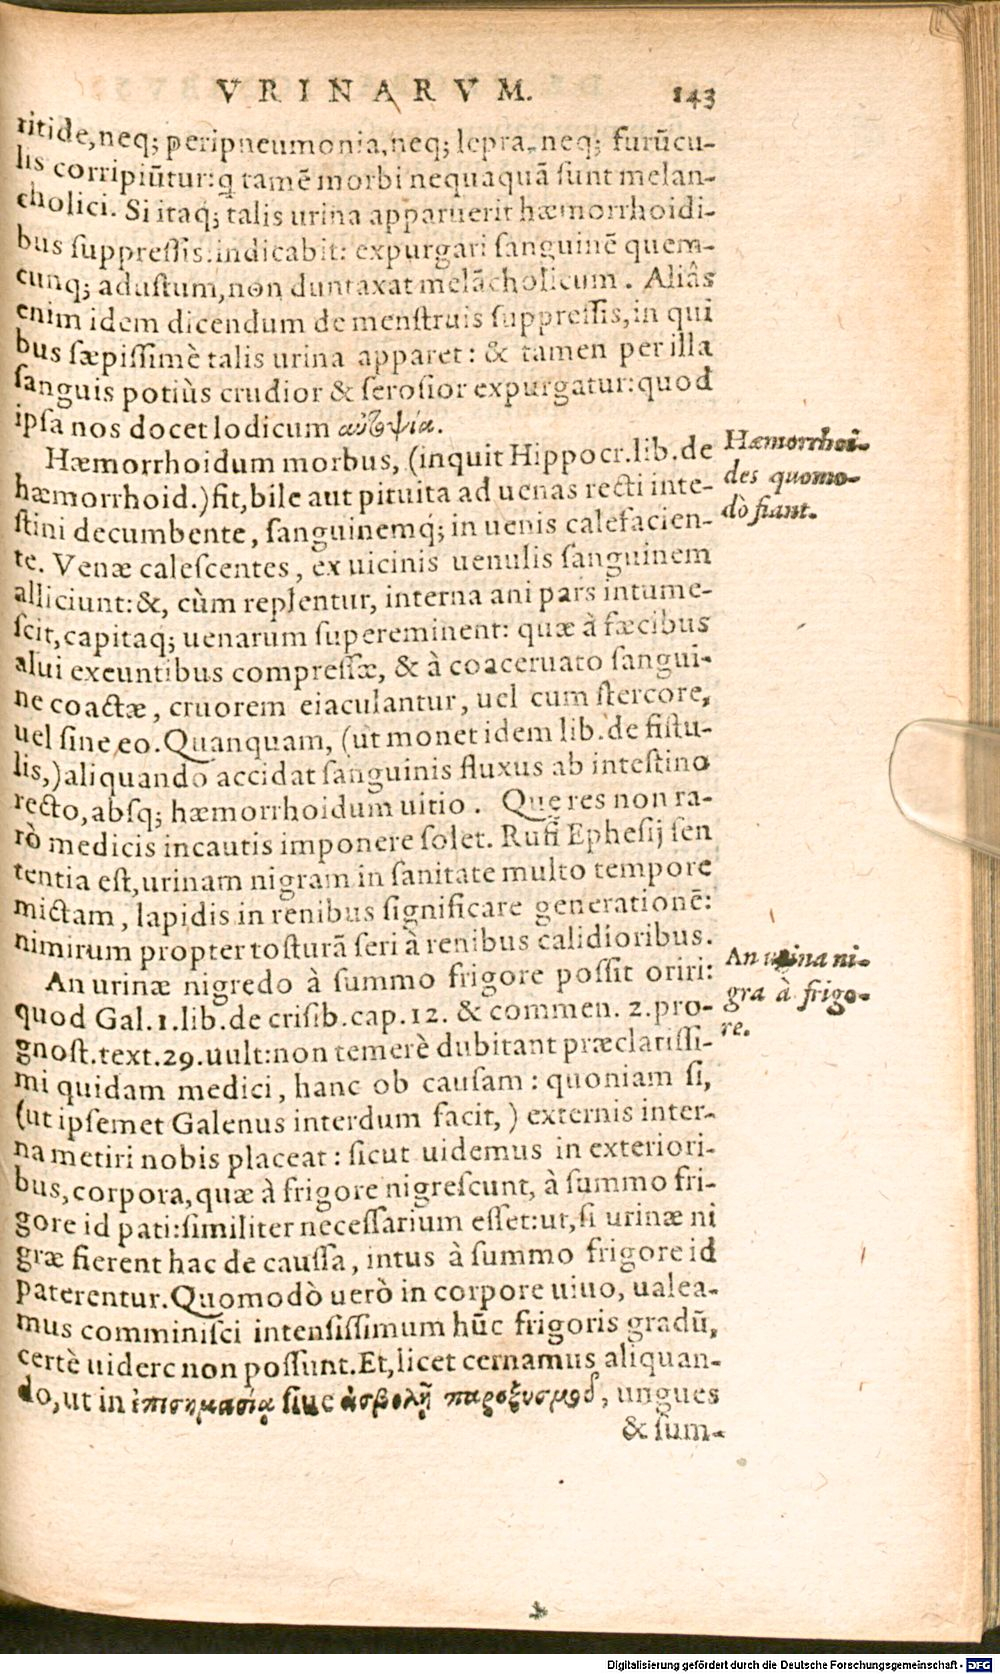 VRINARVM. 143
ritide, neq; peripneumonia, neq; lepra, neq; furũcu-
lis corripiũtur: q̃ tamẽ morbi nequaquã sunt melan-
cholici. Si itaq; talis urina apparuerit hæmorrhoidi-
bus suppressis, indicabit: expurgari sanguinẽ quem-
cunq; adustum, non duntaxat melãcholicum. Aliâs
enim idem dicendum de menstruis suppressis, in qui
bus sæpissimè talis urina apparet: & tamen per illa
sanguis potiùs crudior & serosior expurgatur: quod
ipsa nos docet lodicum αὐτοψία.
Hæmorrhoidum morbus, (inquit Hippocr. lib. de
hæmorrhoid.) fit, bile aut pituita ad uenas recti inte-
stini decumbente, sanguinemq́; in uenis calefacien-
te. Venæ calescentes, ex uicinis uenulis sanguinem
alliciunt: &, cùm replentur, interna ani pars intume-
scit, capitaq; uenarum supereminent: quæ à fæcibus
alui exeuntibus compressæ, & à coaceruato sangui-
ne coactæ, cruorem eiaculantur, uel cum stercore,
uel sine eo. Quanquam, (ut monet idem lib. de fistu-
lis,) aliquando accidat sanguinis fluxus ab intestino
recto, absq; hæmorrhoidum uitio. Quę res non ra-
rò medicis incautis imponere solet. Rufi Ephesij sen
tentia est, urinam nigram in sanitate multo tempore
mictam, lapidis in renibus significare generationẽ:
nimirum propter tosturã seri à renibus calidioribus.
An urinæ nigredo à summo frigore possit oriri:
quod Gal. 1. lib. de crisib. cap. 12. & commen. 2. pro-
gnost. text. 29. uult: non temerè dubitant præclarissi-
mi quidam medici, hanc ob causam: quoniam si,
(ut ipsemet Galenus interdum facit,) externis inter-
na metiri nobis placeat: sicut uidemus in exteriori-
bus, corpora, quæ à frigore nigrescunt, à summo fri-
gore id pati: similiter necessarium esset: ut, si urinæ ni
græ fierent hac de caussa, intus à summo frigore id
paterentur. Quomodò uerò in corpore uiuo, ualea-
mus comminisci intensissimum hũc frigoris gradũ,
certè uidere non possunt. Et, licet cernamus aliquan-
do, ut in ἐπισημασίᾳ siue ἀσβολῇ παροξυσμοῦ, ungues
& sum-
Hæmorrhoi-
des quomo-
dò fiant.
An urina ni-
gra à frigo-
re.
Digitalisierung gefördert durch die Deutsche Forschungsgemeinschaft - DFG